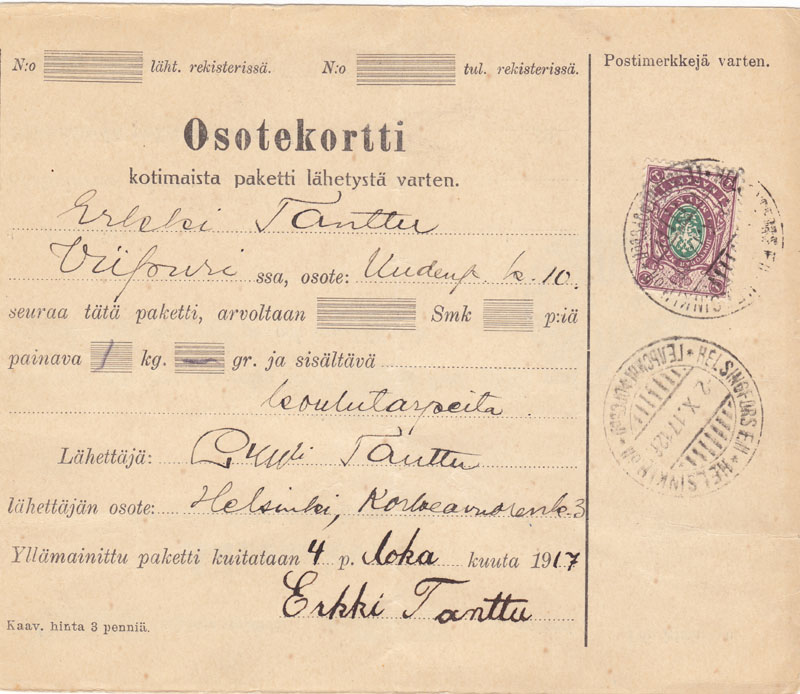 N:o läht. rekisterissä. N:o tul. rekisterissä.
Postimerkkejä varten.
Osotekortti
kotimaista paketti lähetystä varten.
Erkki Tanttu
Viipuri ssa, osote: Uudenp. k. 10.
seuraa tätä paketti, arvoltaan Smk p:iä
painava 1 kg. — gr. ja sisältävä
koulutarpeita.
Lähettäjä: Lyyli Tanttu
lähettäjän osote: Helsinki, Korkeavuorenk 3
Yllämainittu paketti kuitataan 4 p. loka kuuta 1917
Erkki Tanttu
Kaav. hinta 3 penniä.
HELSINGFORS EN * HELSINKI
2.X.17